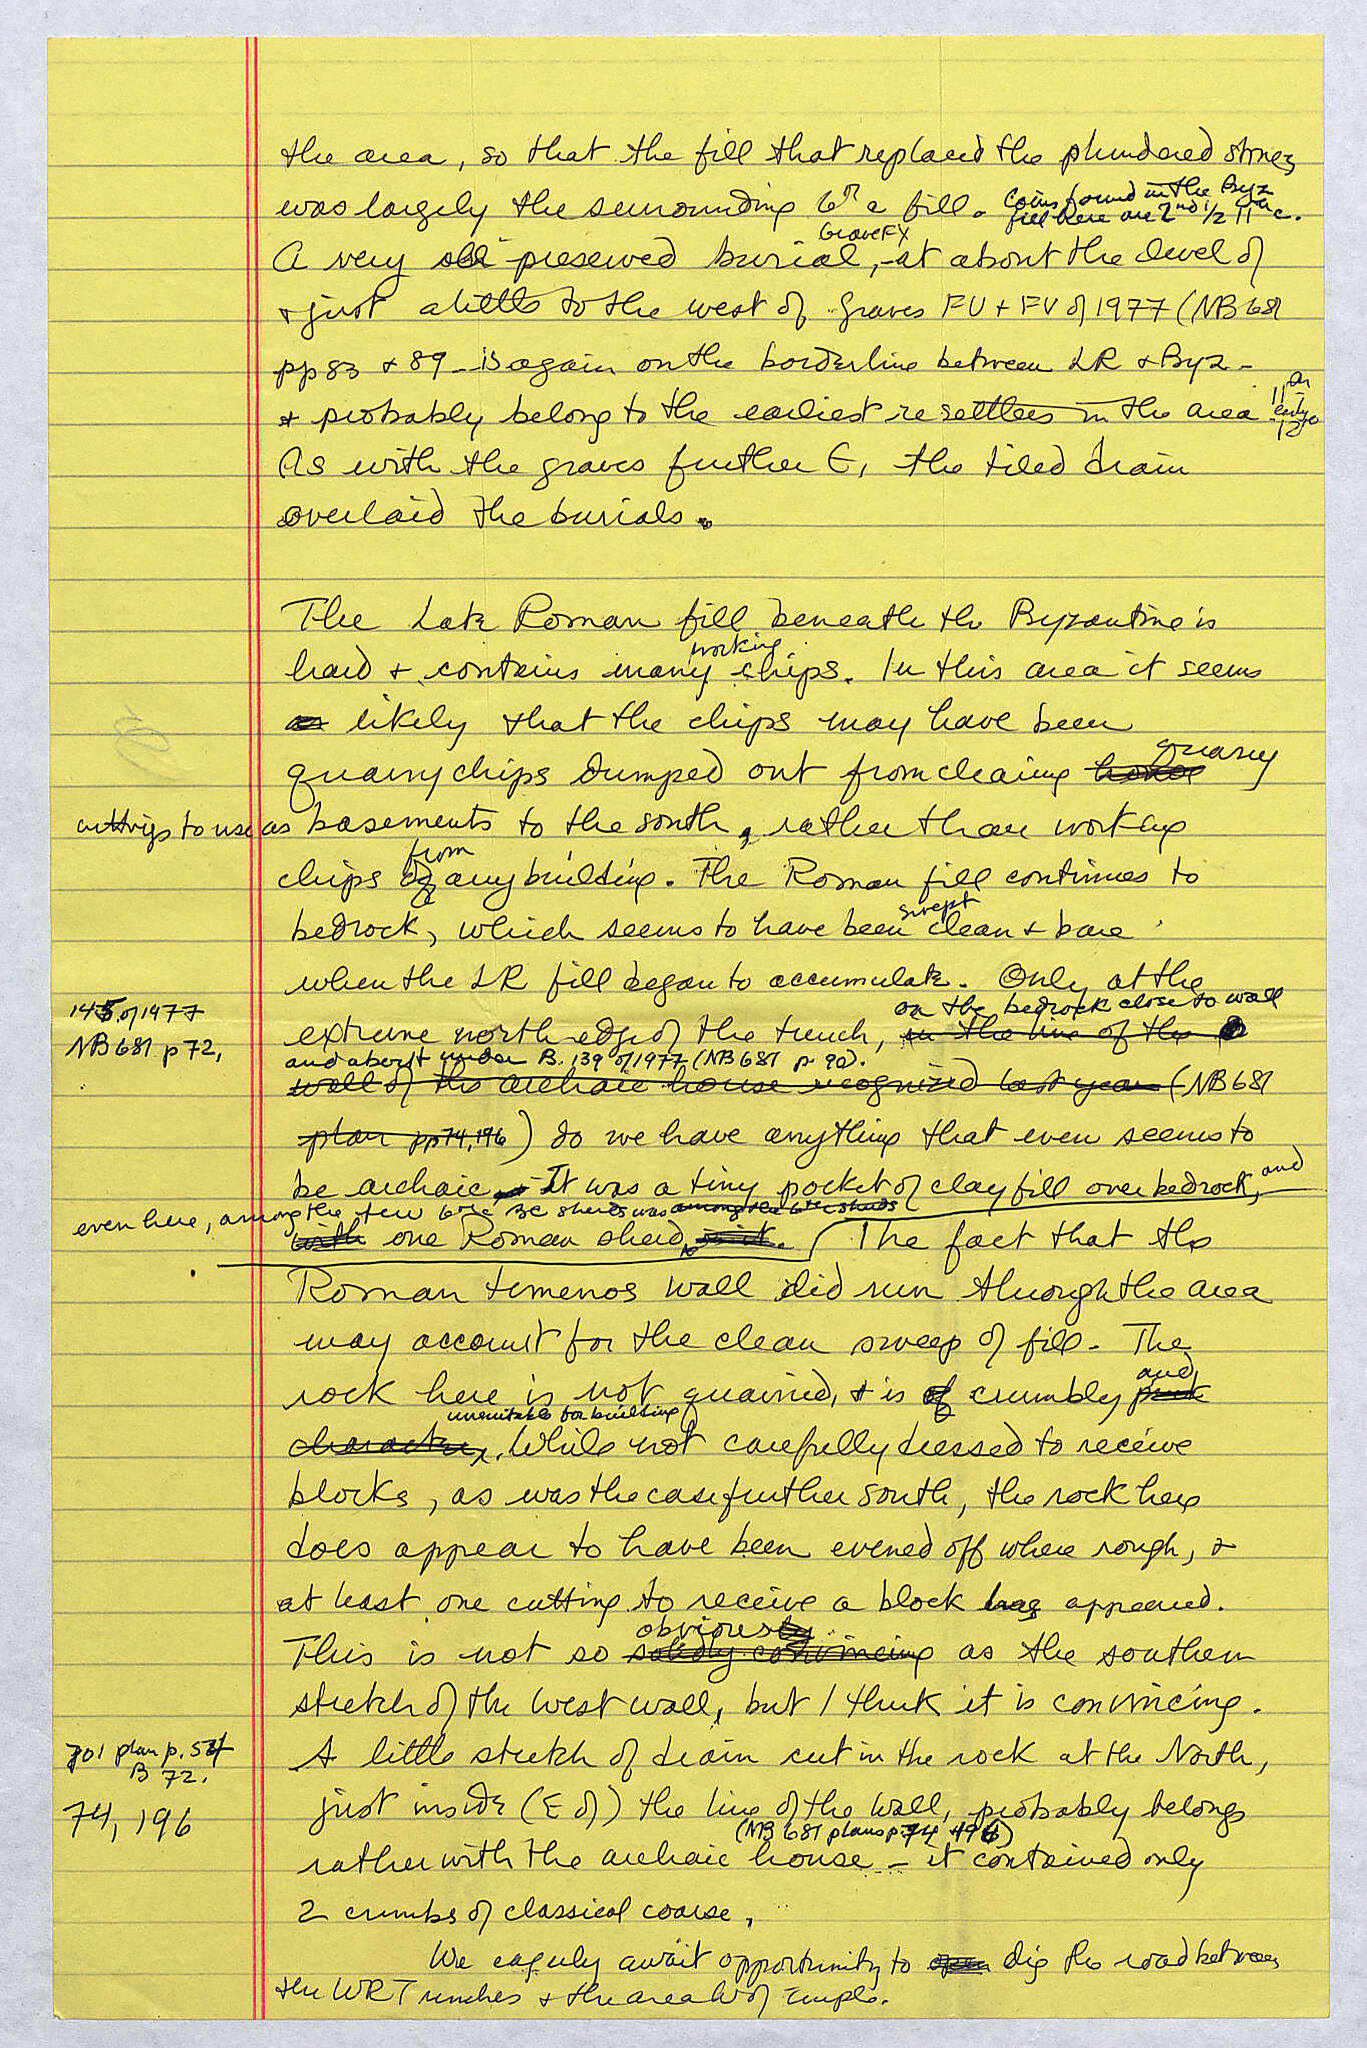 the area, so that the fill that replaced the plundered stones
was largely the surrounding 6th c fill. Coins found in the Byz
fill here are 2nd 1/2 11th c.
Grave FX
A very well preserved burial, at about the level of
+ just a little to the west of graves FU + FV of 1977 (NB 681
pp 83 + 89 - is again on the borderline between LR + Byz -
+ probably belong to the earliest resettlers in the area 11 or early 12
As with the graves further E, the tiled drain
overlaid the burials.
The Late Roman fill beneath the Byzantine is
working
hard + contains many chips. In this area it seems
likely that the chips may have been
quarry chips dumped out from clearing quarry
cuttings to use as basements to the south, rather than working
from
chips of any building. The Roman fill continues to
swept
bedrock, which seems to have been clean + bare
when the LR fill began to accumulate. Only at the
145 of 1977
NB 681 p 72,
on the bedrock close to wall
extreme north edge of the trench, in the line of the
and about under B. 139 of 1977 (NB 681 p 90).
wall of the archaic house recognized last year (NB 681
plan pp 74, 196) do we have anything that even seems to
be archaic - It was a tiny pocket of clay fill over bedrock, and
even here, among the few 6th c BC sherds was among the 6th c sherds
with one Roman sherd in it. The fact that the
Roman temenos wall did run through the area
may account for the clean sweep of fill. The
rock here is not quarried, + is of crumbly and
unsuitable for building
character. While not carefully dressed to receive
blocks, as was the case further south, the rock here
does appear to have been evened off where rough, +
at least one cutting to receive a block has appeared.
obviously
This is not so solidly convincing as the southern
stretch of the west wall, but I think it is convincing.
701 plan p. 54
B 72.
A little stretch of drain cut in the rock at the North,
74, 196
just inside (E of) the line of the wall, probably belongs
(NB 681 plans p. 74 + 196)
rather with the archaic house - it contained only
2 crumbs of classical coarse.
We eagerly await opportunity to open dig the road between
the WR Trenches + the area W of Temple.